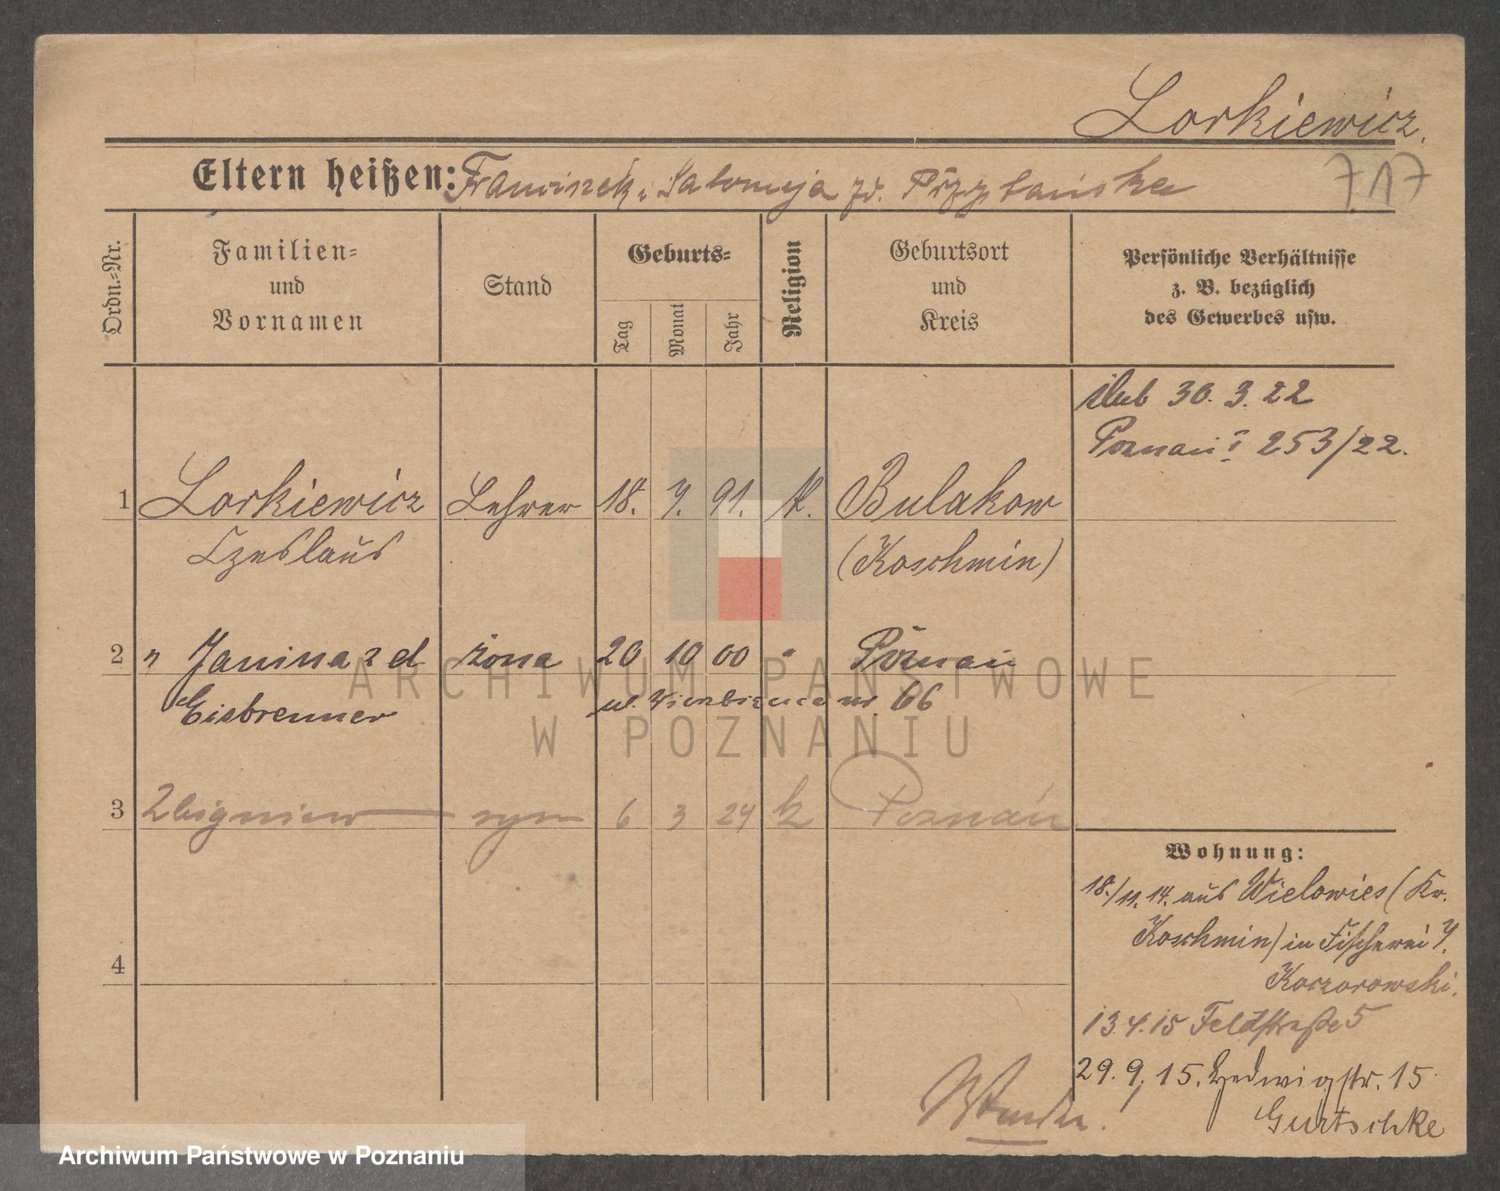 Lorkiewicz.
717
Eltern heißen: Franciszek i Salomeja zd. Przybańska
Ordn.-Nr.
Familien-
und
Vornamen
Stand
Geburts-
Tag
Monat
Jahr
Religion
Geburtsort
und
Kreis
Persönliche Verhältnisse
z. B. bezüglich
des Gewerbes usw.
ślub 30. 3. 22
Poznań I 253/22.
1 Lorkiewicz Lehrer 18. 7. 91. K. Bulakow
Czeslaus (Koschmin)
2 " Janina z d. żona 20 10 00 " Poznań
Eisbrenner ul. Wierzbięcice nr 66
3 Zbigniew syn 6 3 24 k Poznań
4
Wohnung:
18./11. 14. aus Wielowies (Kr.
Koschmin) in Fischerei 7.
Kaczorowski.
13.4.15 Feldstraße 5
29. 9. 15. Hedwigstr. 15
Gurtschke
Wenden!
ARCHIWUM PAŃSTWOWE
W POZNANIU
Archiwum Państwowe w Poznaniu